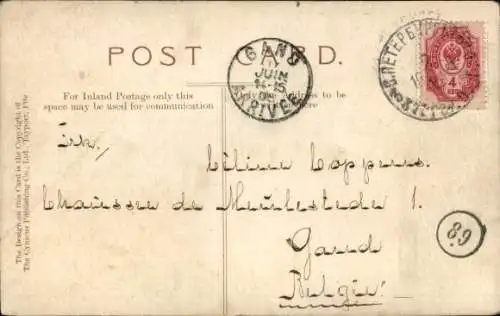 POST CARD.
For Inland Postage only this
space may be used for communication
Address to be
here
The Design on this Card is the Copyright of
The Cynicus Publishing Co., Ltd., Tayport, Fife
GAND
JUIN
ARRIVÉE
С.ПЕТЕРБУРГ
4
Coppens.
Chaussée de Meulestede 1.
Gand
Belgie.
68